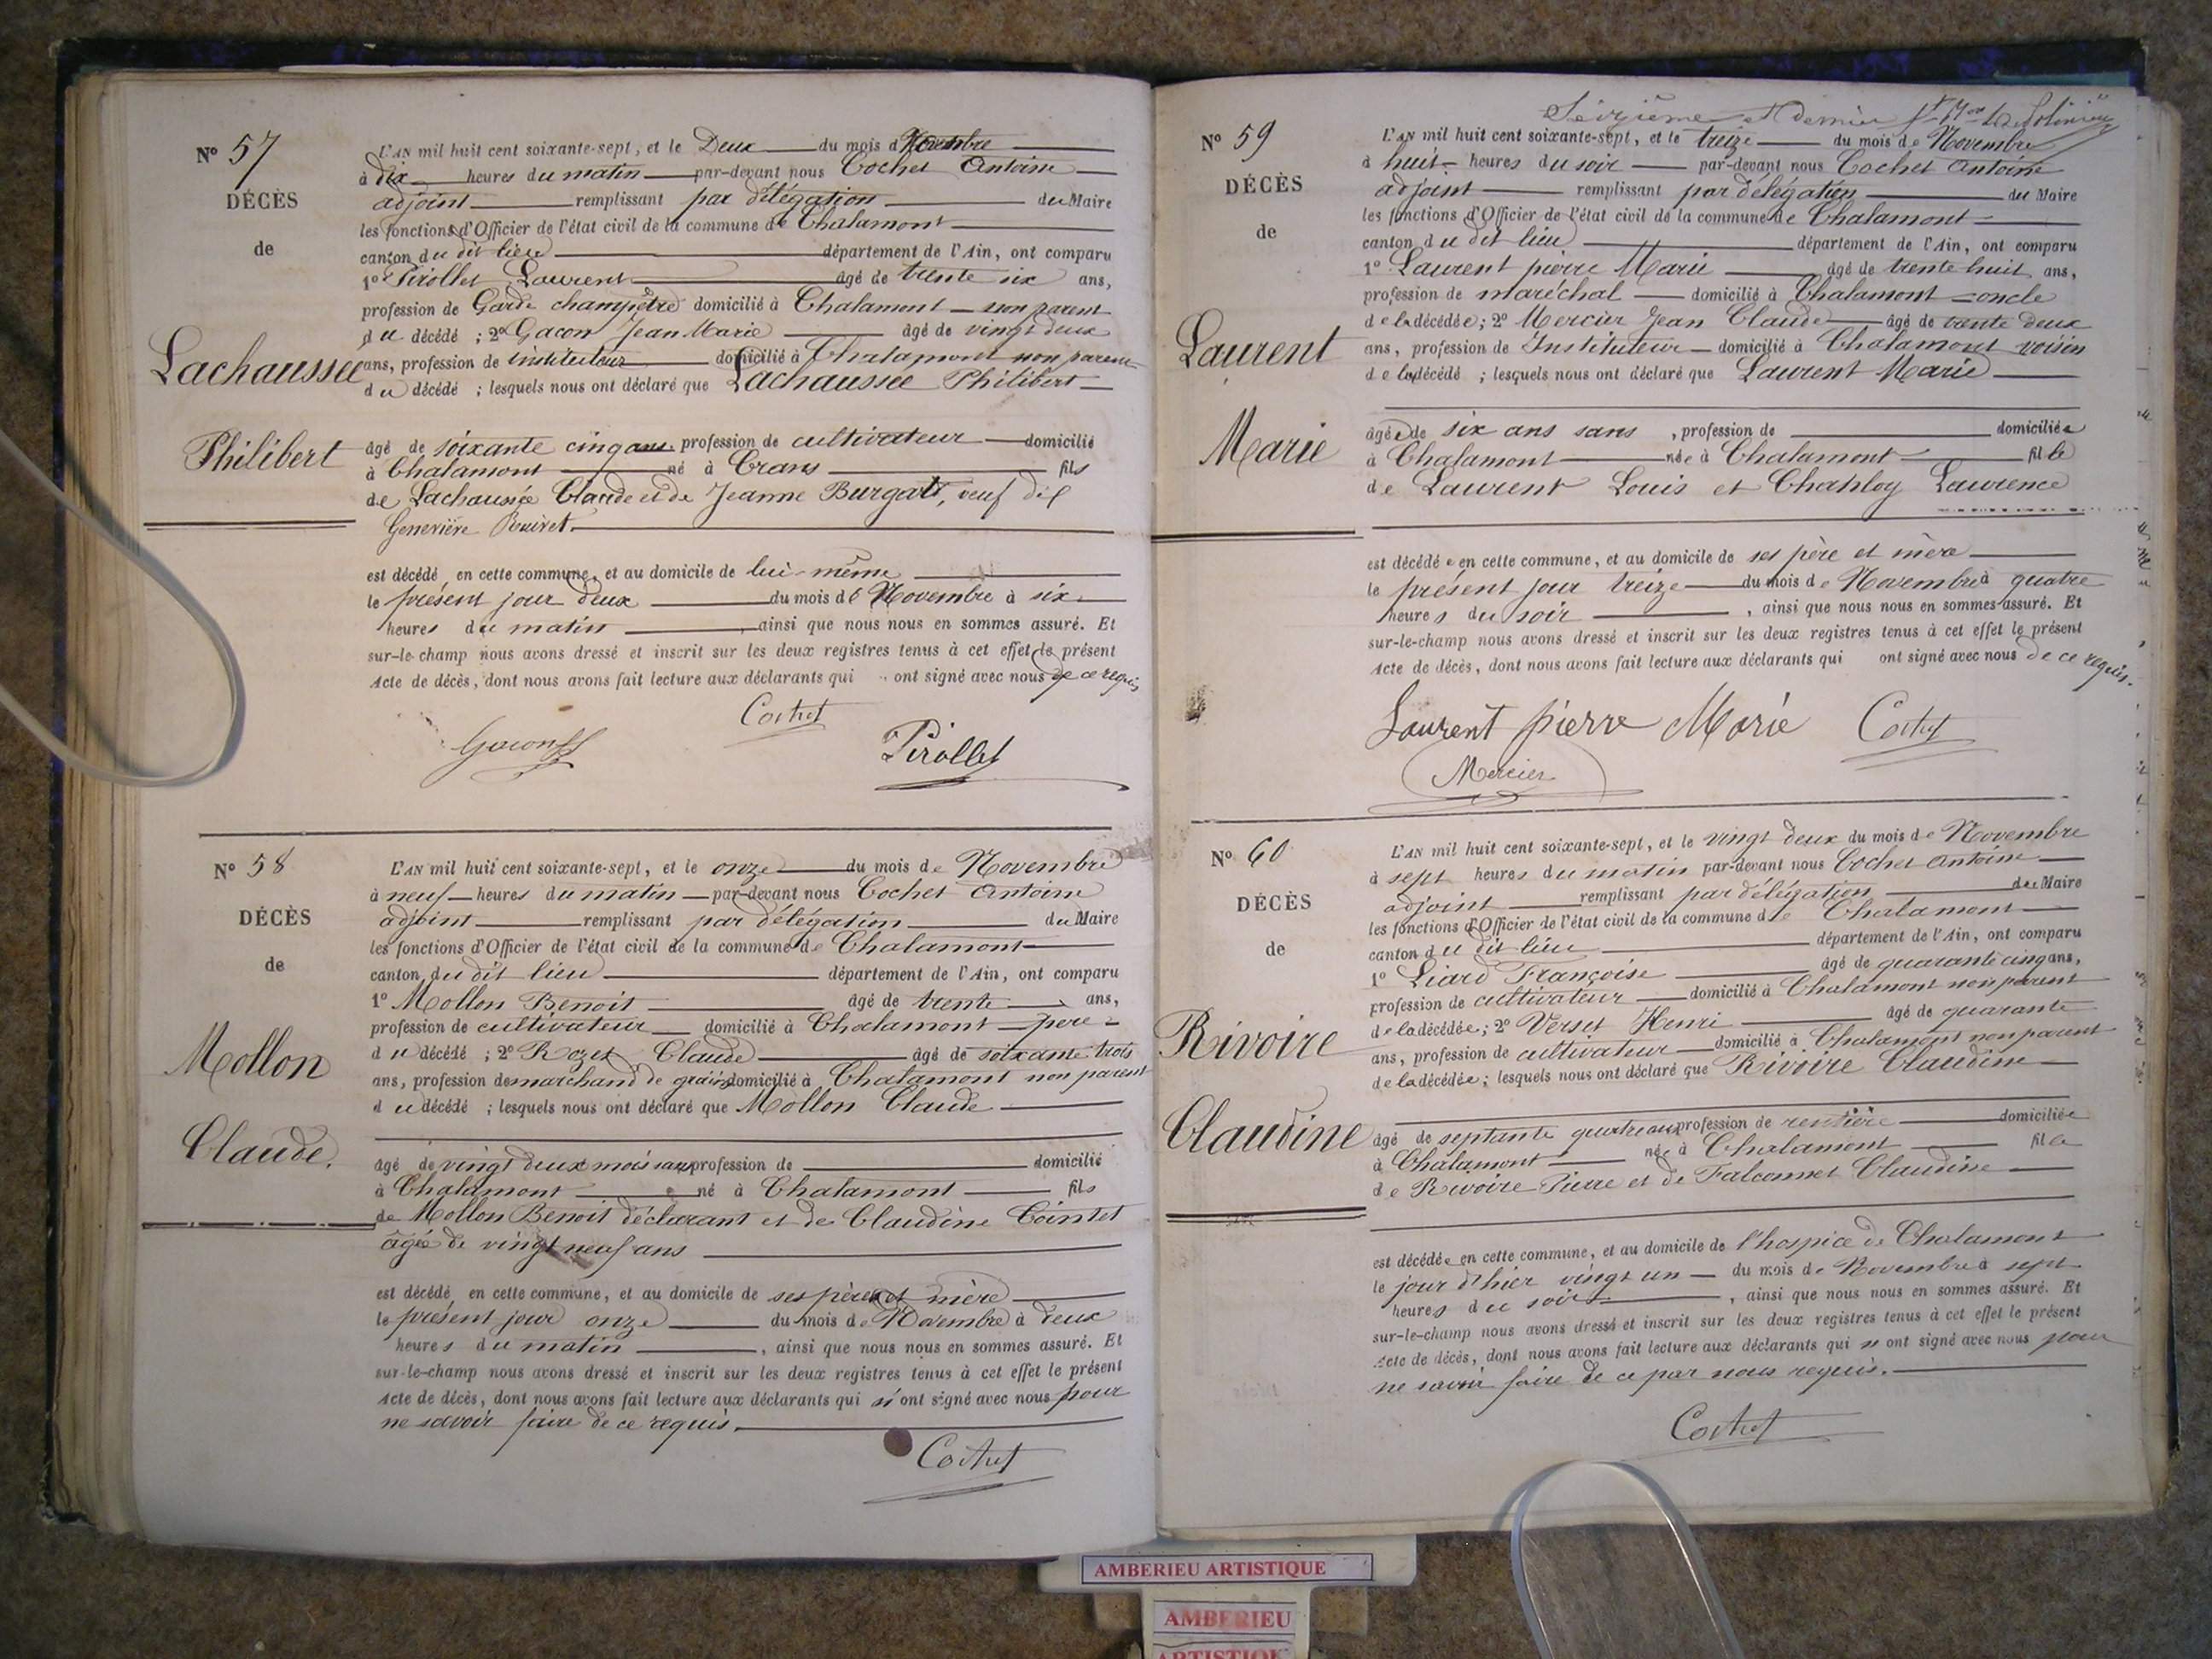 Nº 57
DÉCÈS
de
Lachaussée
Philibert
L'AN mil huit cent soixante-sept, et le Deux du mois de Novembre
à dix heures du matin par-devant nous Cochet Antoine
adjoint remplissant par délégation du Maire
les fonctions d'Officier de l'état civil de la commune de Chalamont
canton du dit lieu département de l'Ain, ont comparu
1º Pirollet Laurent âgé de trente six ans,
profession de Garde champêtre domicilié à Chalamont non parent
du décédé ; 2º Gacon Jean Marie âgé de vingt deux
ans, profession de instituteur domicilié à Chalamont non parent
du décédé ; lesquels nous ont déclaré que Lachaussée Philibert
âgé de soixante cinq ans profession de cultivateur domicilié
à Chalamont né à Crans fils
de Lachaussée Claude et de Jeanne Burgat, veuf de
Geneviève
est décédé en cette commune, et au domicile de lui-même
le présent jour deux du mois de Novembre à six
heures du matin , ainsi que nous nous en sommes assuré. Et
sur-le-champ nous avons dressé et inscrit sur les deux registres tenus à cet effet le présent
Acte de décès, dont nous avons fait lecture aux déclarants qui ont signé avec nous de ce requis
Cochet
Gacon
Pirollet
Nº 58
DÉCÈS
de
Mollon
Claude.
L'AN mil huit cent soixante-sept, et le onze du mois de Novembre
à neuf heures du matin par-devant nous Cochet Antoine
adjoint remplissant par délégation du Maire
les fonctions d'Officier de l'état civil de la commune de Chalamont
canton du dit lieu département de l'Ain, ont comparu
1º Mollon Benoit âgé de trente ans,
profession de cultivateur domicilié à Chalamont père
du décédé ; 2º Rozet Claude âgé de soixante trois
ans, profession de marchand de grains domicilié à Chalamont non parent
du décédé ; lesquels nous ont déclaré que Mollon Claude
âgé de vingt deux mois sans profession de domicilié
à Chalamont né à Chalamont fils
de Mollon Benoit déclarant et de Claudine Cointet
âgée de vingt neuf ans
est décédé en cette commune, et au domicile de ses père et mère
le présent jour onze du mois de Novembre à deux
heures du matin , ainsi que nous nous en sommes assuré. Et
sur-le-champ nous avons dressé et inscrit sur les deux registres tenus à cet effet le présent
Acte de décès, dont nous avons fait lecture aux déclarants qui n'ont signé avec nous pour
ne savoir faire de ce requis.
Cochet
Seizième et dernier
Nº 59
DÉCÈS
de
Laurent
Marie
L'AN mil huit cent soixante-sept, et le treize du mois de Novembre
à huit heures du soir par-devant nous Cochet Antoine
adjoint remplissant par délégation du Maire
les fonctions d'Officier de l'état civil de la commune de Chalamont
canton du dit lieu département de l'Ain, ont comparu
1º Laurent pierre Marie âgé de trente huit ans,
profession de maréchal domicilié à Chalamont oncle
de la décédée ; 2º Mercier Jean Claude âgé de trente deux
ans, profession de Instituteur domicilié à Chalamont voisin
de la décédé ; lesquels nous ont déclaré que Laurent Marie
âgée de six ans sans , profession de domiciliée
à Chalamont née à Chalamont fille
de Laurent Louis et Laurence
est décédée en cette commune, et au domicile de ses père et mère
le présent jour treize du mois de Novembre à quatre
heures du soir , ainsi que nous nous en sommes assuré. Et
sur-le-champ nous avons dressé et inscrit sur les deux registres tenus à cet effet le présent
Acte de décès, dont nous avons fait lecture aux déclarants qui ont signé avec nous de ce requis.
Laurent pierre Marie Cochet
Mercier
Nº 60
DÉCÈS
de
Rivoire
Claudine
L'AN mil huit cent soixante-sept, et le vingt deux du mois de Novembre
à sept heures du matin par-devant nous Cochet Antoine
adjoint remplissant par délégation du Maire
les fonctions d'Officier de l'état civil de la commune de Chalamont
canton du dit lieu département de l'Ain, ont comparu
1º Liard Françoise âgé de quarante cinq ans,
profession de cultivateur domicilié à Chalamont non parent
de la décédée ; 2º Verset Henri âgé de quarante
ans, profession de cultivateur domicilié à Chalamont non parent
de la décédée ; lesquels nous ont déclaré que Rivoire Claudine
âgé de septante quatre ans profession de rentière domiciliée
à Chalamont née à Chalamont fille
de Rivoire Pierre et de Falconnet Claudine
est décédée en cette commune, et au domicile de l'hospice de Chalamont
le jour d'hier vingt un du mois de Novembre à sept
heures du soir , ainsi que nous nous en sommes assuré. Et
sur-le-champ nous avons dressé et inscrit sur les deux registres tenus à cet effet le présent
Acte de décès, dont nous avons fait lecture aux déclarants qui n'ont signé avec nous pour
ne savoir faire de ce par nous requis.
Cochet
AMBERIEU ARTISTIQUE
AMBERIEU
ARTISTIQUE